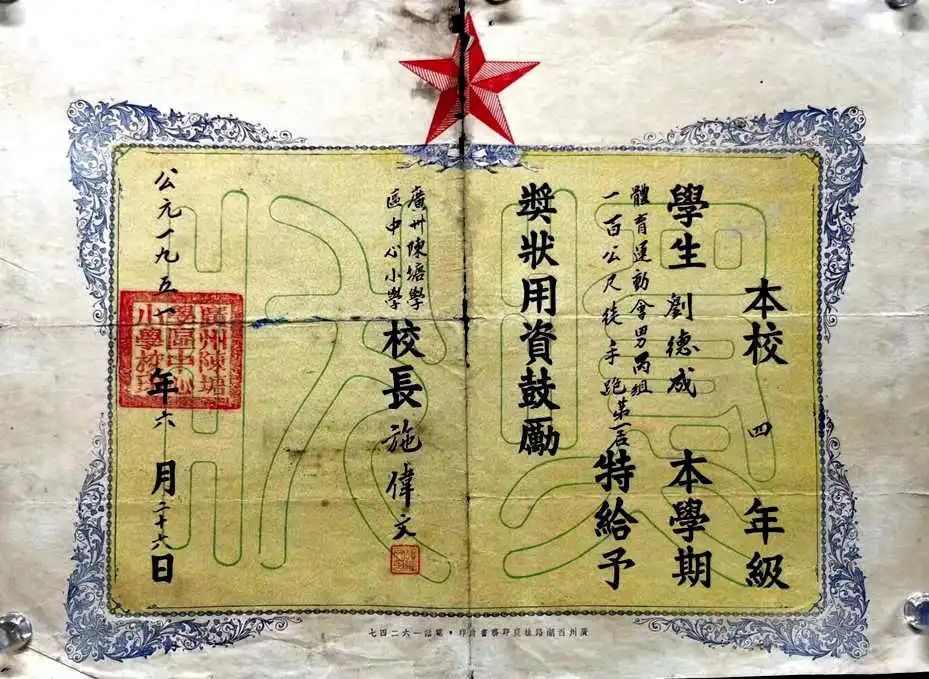 本校 四 年級
學生 劉德成 本學期
體育運動會男丙組
一百公尺徒手跑第一名 特給予
獎狀用資鼓勵
廣州陳塘學
區中心小學
校長 施偉文
公元一九五一年六月二十九日
廣州陳塘
學區中心
小學校
獎狀